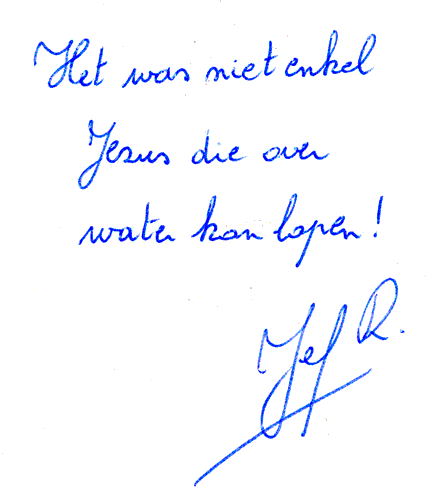 Het was niet enkel
Jezus die over
water kon lopen!
Jef R.